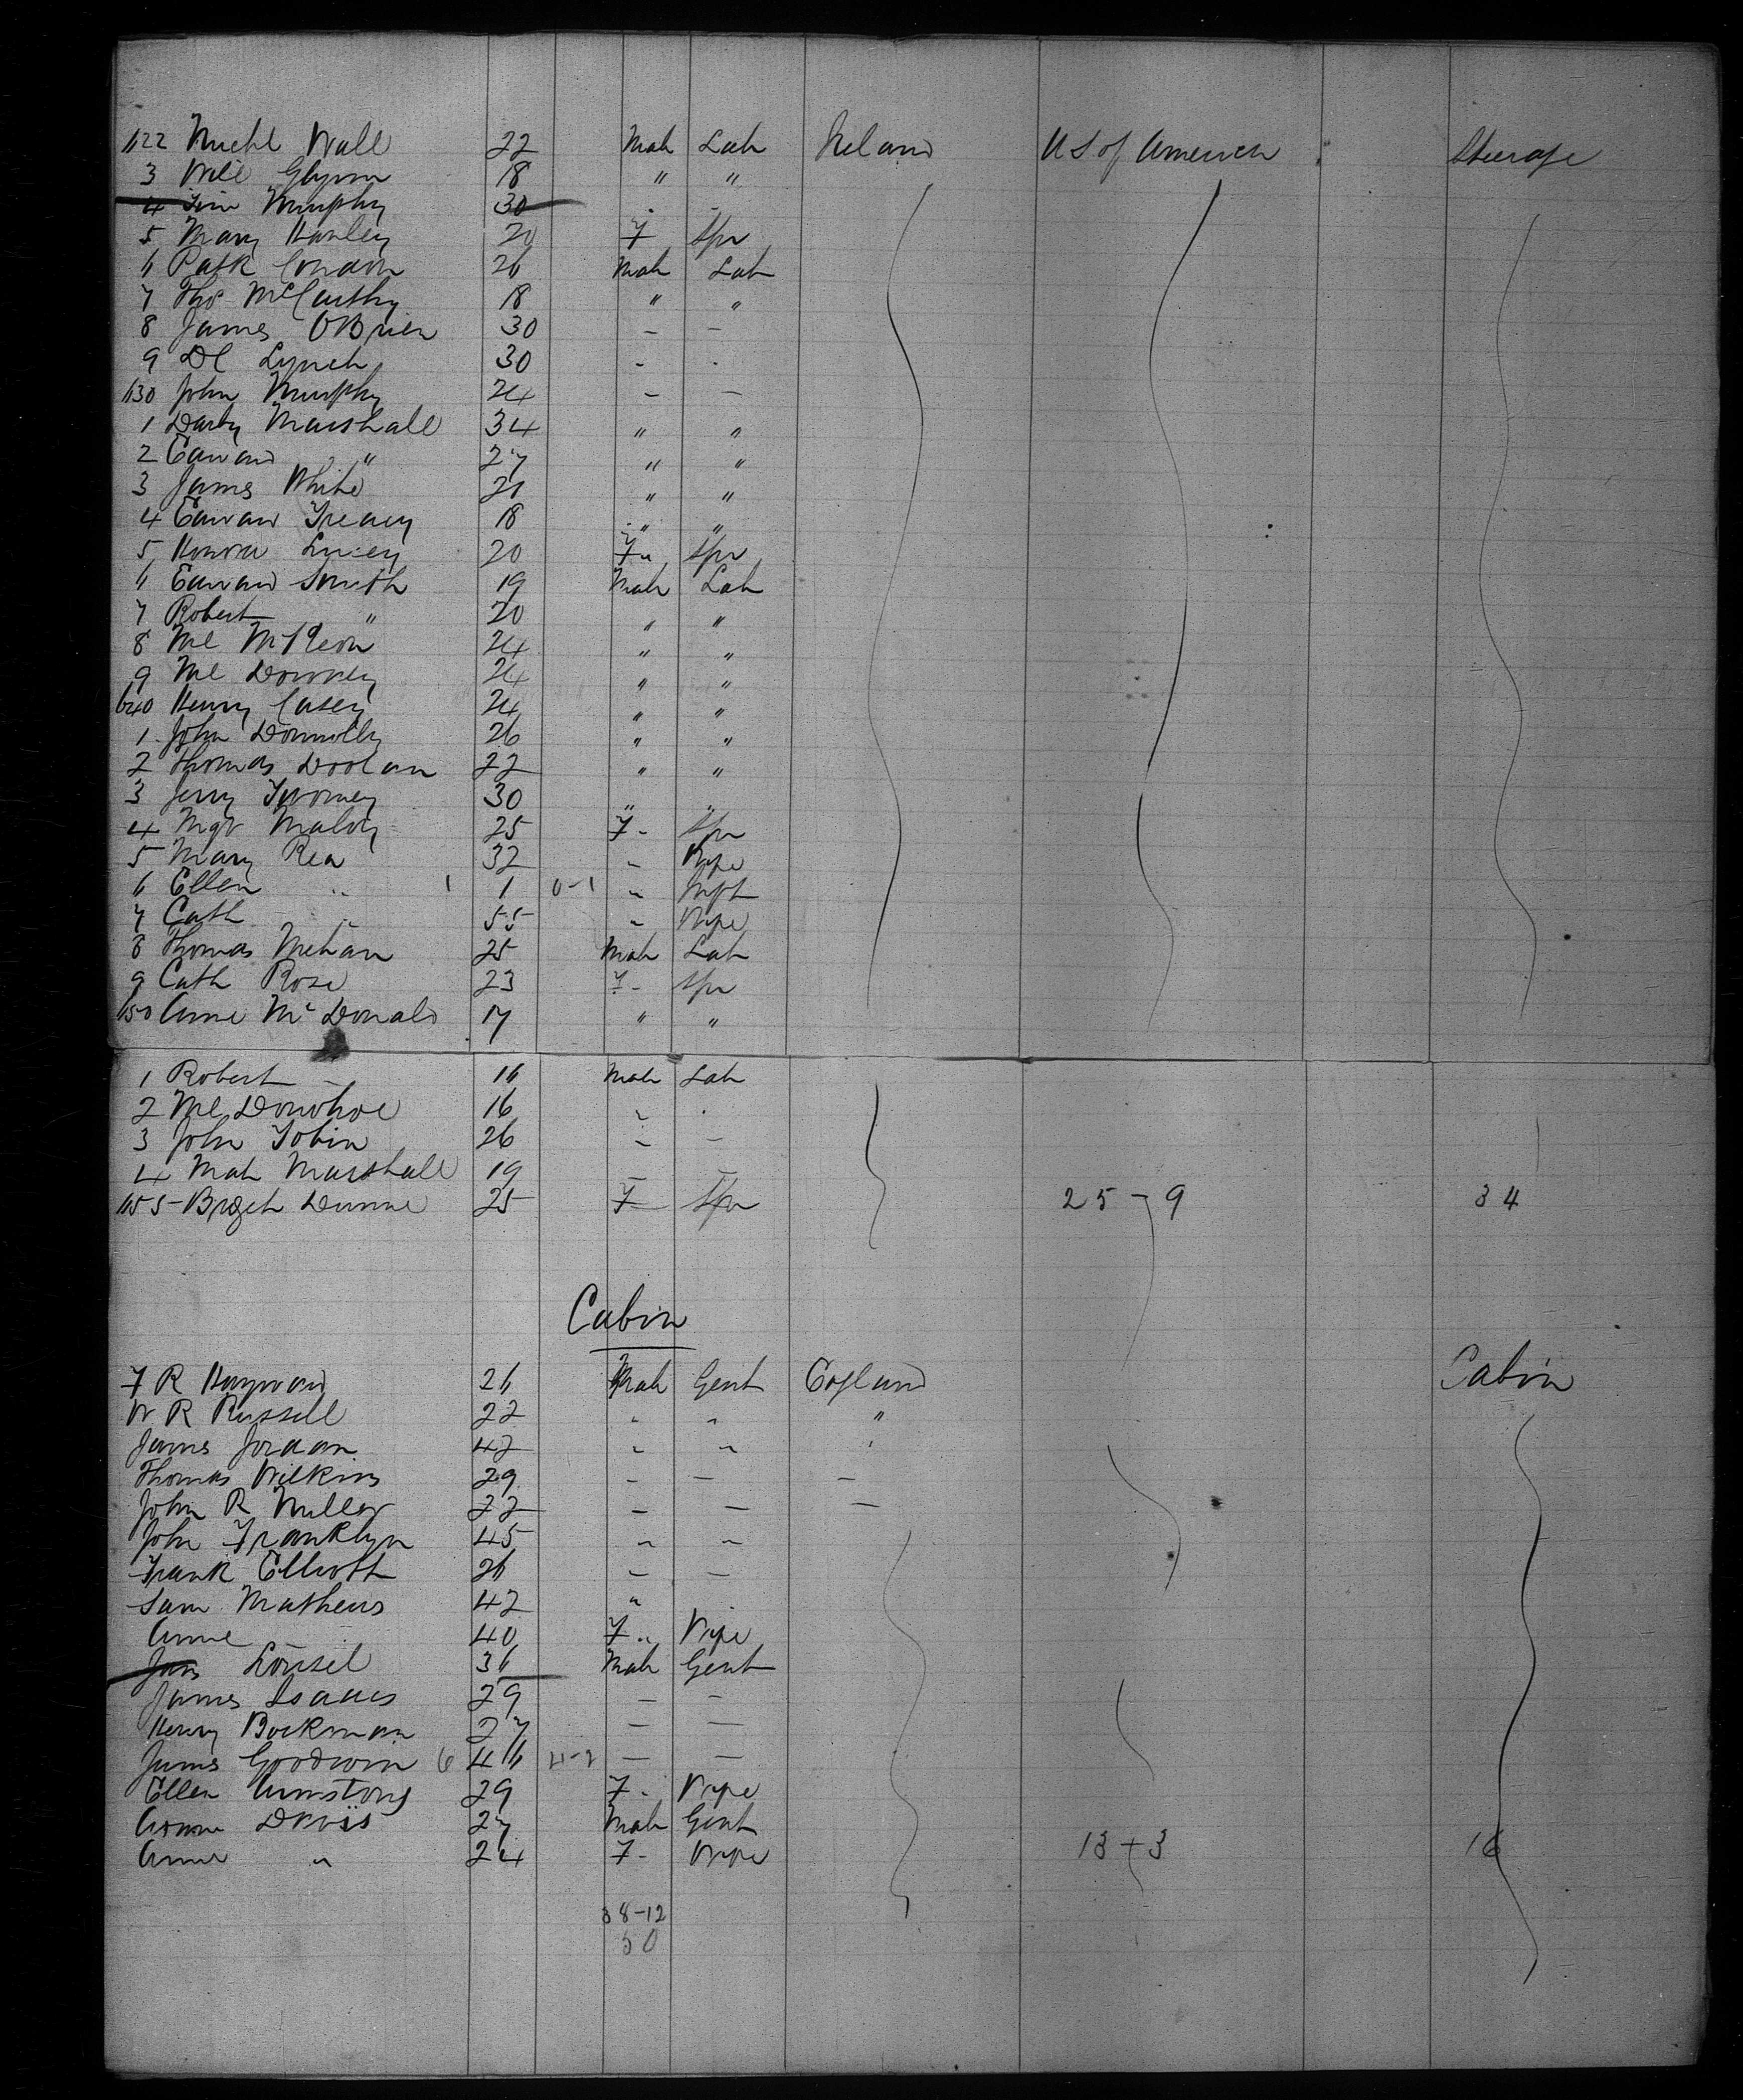 1122 Michl Wall 22 Male Lab Ireland US of America Steerage
3 Will Glynn 18 " "
4 Tim Murphy 30
5 Mary Hanley 20 F Spr
6 Patk Condon 26 Male Lab
7 Thos McCarthy 18 " "
8 James OBrien 30 - -
9 Dl Lynch 30 - -
1130 John Murphy 24 - -
1 Darby Marshall 34 " "
2 Edward " 27 " "
3 James White 21 " "
4 Edward Treacy 18 " "
5 Honora Lucey 20 F " Spr
6 Edward Smith 19 Male Lab
7 Robert " 20 " "
8 Ml 24 " "
9 Ml Downey 24 " "
1140 Henry Casey 24 " "
1 John Donnolly 26 " "
2 Thomas Doolan 22 " "
3 Jerry Twomey 30 " "
4 Mgt Maloy 25 F - Spr
5 Mary Rea 32 " Wife
6 Ellen " 1 1 0-1 " Inft
7 Cath " 55 " Wife
8 Thomas Mehan 25 Male Lab
9 Cath Rose 23 F - Spr
1150 Anne McDonald 17 " "
1 Robert - 16 Male Lab
2 Ml Donohoe 16 " "
3 John Tobin 26 - -
4 Mah Marshall 19 - -
1155 Brget Dunne 25 F Spr 25-9 34
Cabin
F R Hayward 26 Male Gent England Cabin
W R Russell 22 " " "
James Jordan 42 " " "
Thomas Wilkins 29 - - -
John R Miller 22 - - -
John Franklyn 45 " "
Frank Elliott 26 - -
Sam Mathews 42 "
Anne - 40 F " Wife
Jas 36 Male Gent
James Isaacs 29 - -
Henry Bockman 27 - -
James Goodwin 6 46 4-2 - -
Ellen Armstong 29 F - Wife
Davis 27 Male Gent
Anne " 24 F - Wife 13+3 16
38-12
50